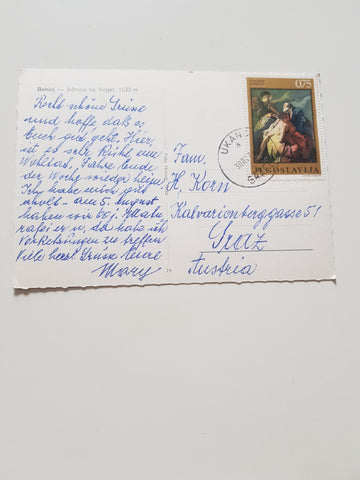 Bohinj — žičnica na Vogel, 1530 m
Recht schöne Grüße
und hoffe, daß es
Euch gut geht. Hier
ist es sehr kühl eine
Wohltat. Fahre Ende
der Woche wieder heim
Ich habe mich gut
erholt – am 5. August
haben wir 60 j.
zu treffen
Viele herzl. Grüße Eure
Mary
0,75
JUGOSLAVIJA
UKANC
Fam.
H. Korn
Kalvarienberggasse 51
Graz
Austria